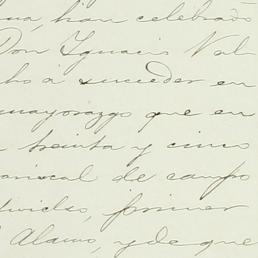 han celebrado
Don Ignacio Val
a suceder en
mayorazgo que en
treinta y cinco
mariscal de campo
primer
Alamo, y de que